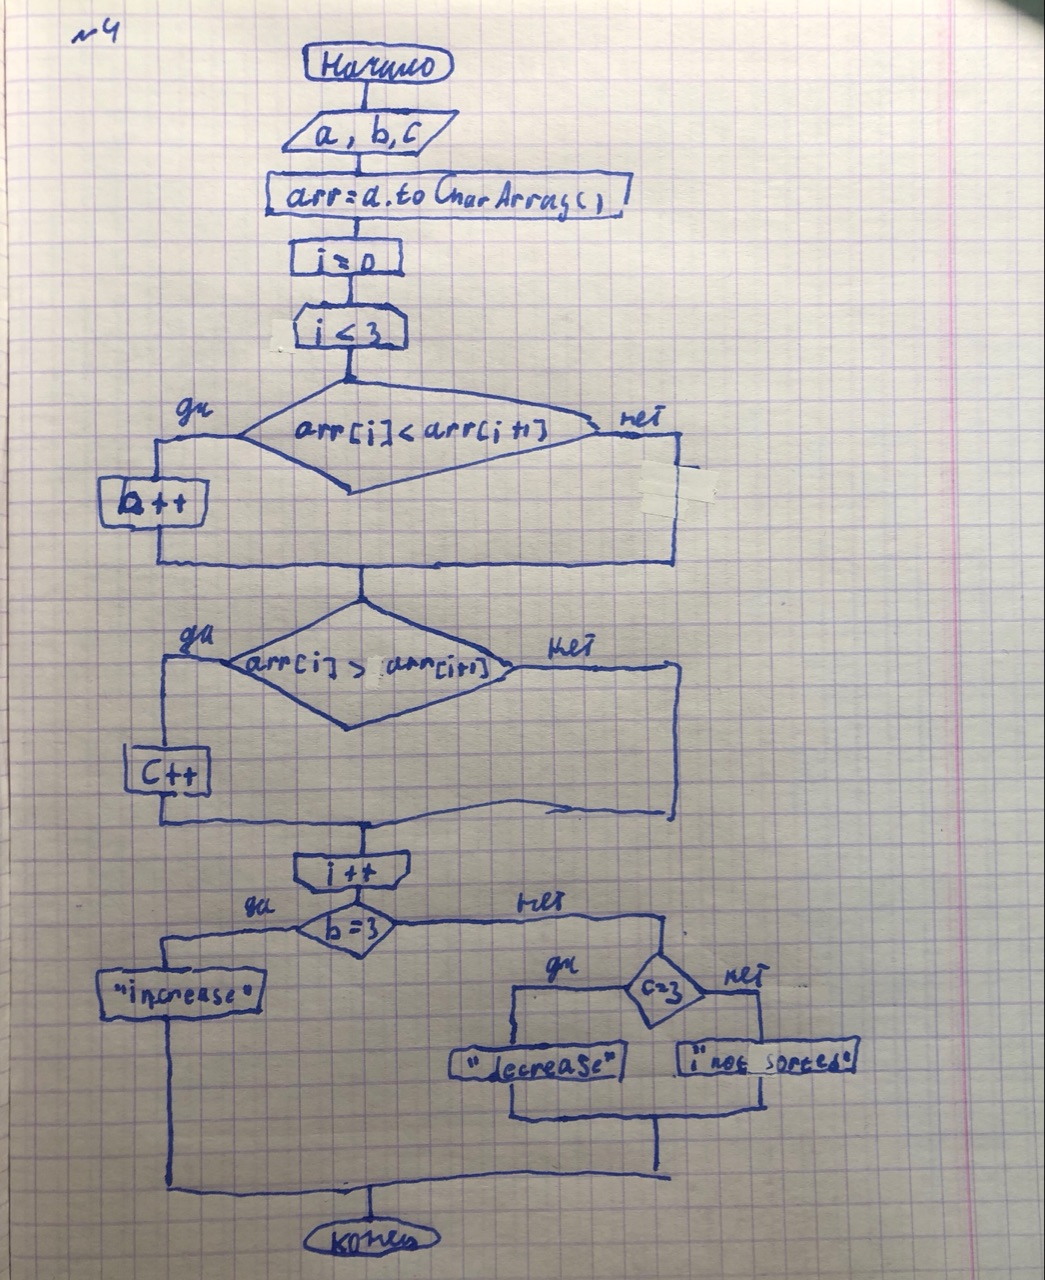 №4
Начало
a, b, c
arr=a.toCharArray()
i=0
i<3
да
arr[i]<arr[i+1]
нет
b++
да
arr[i] > arr[i+1]
нет
C++
i++
да
b=3
нет
"increase"
да
c=3
нет
"decrease"
"not sorted"
конец